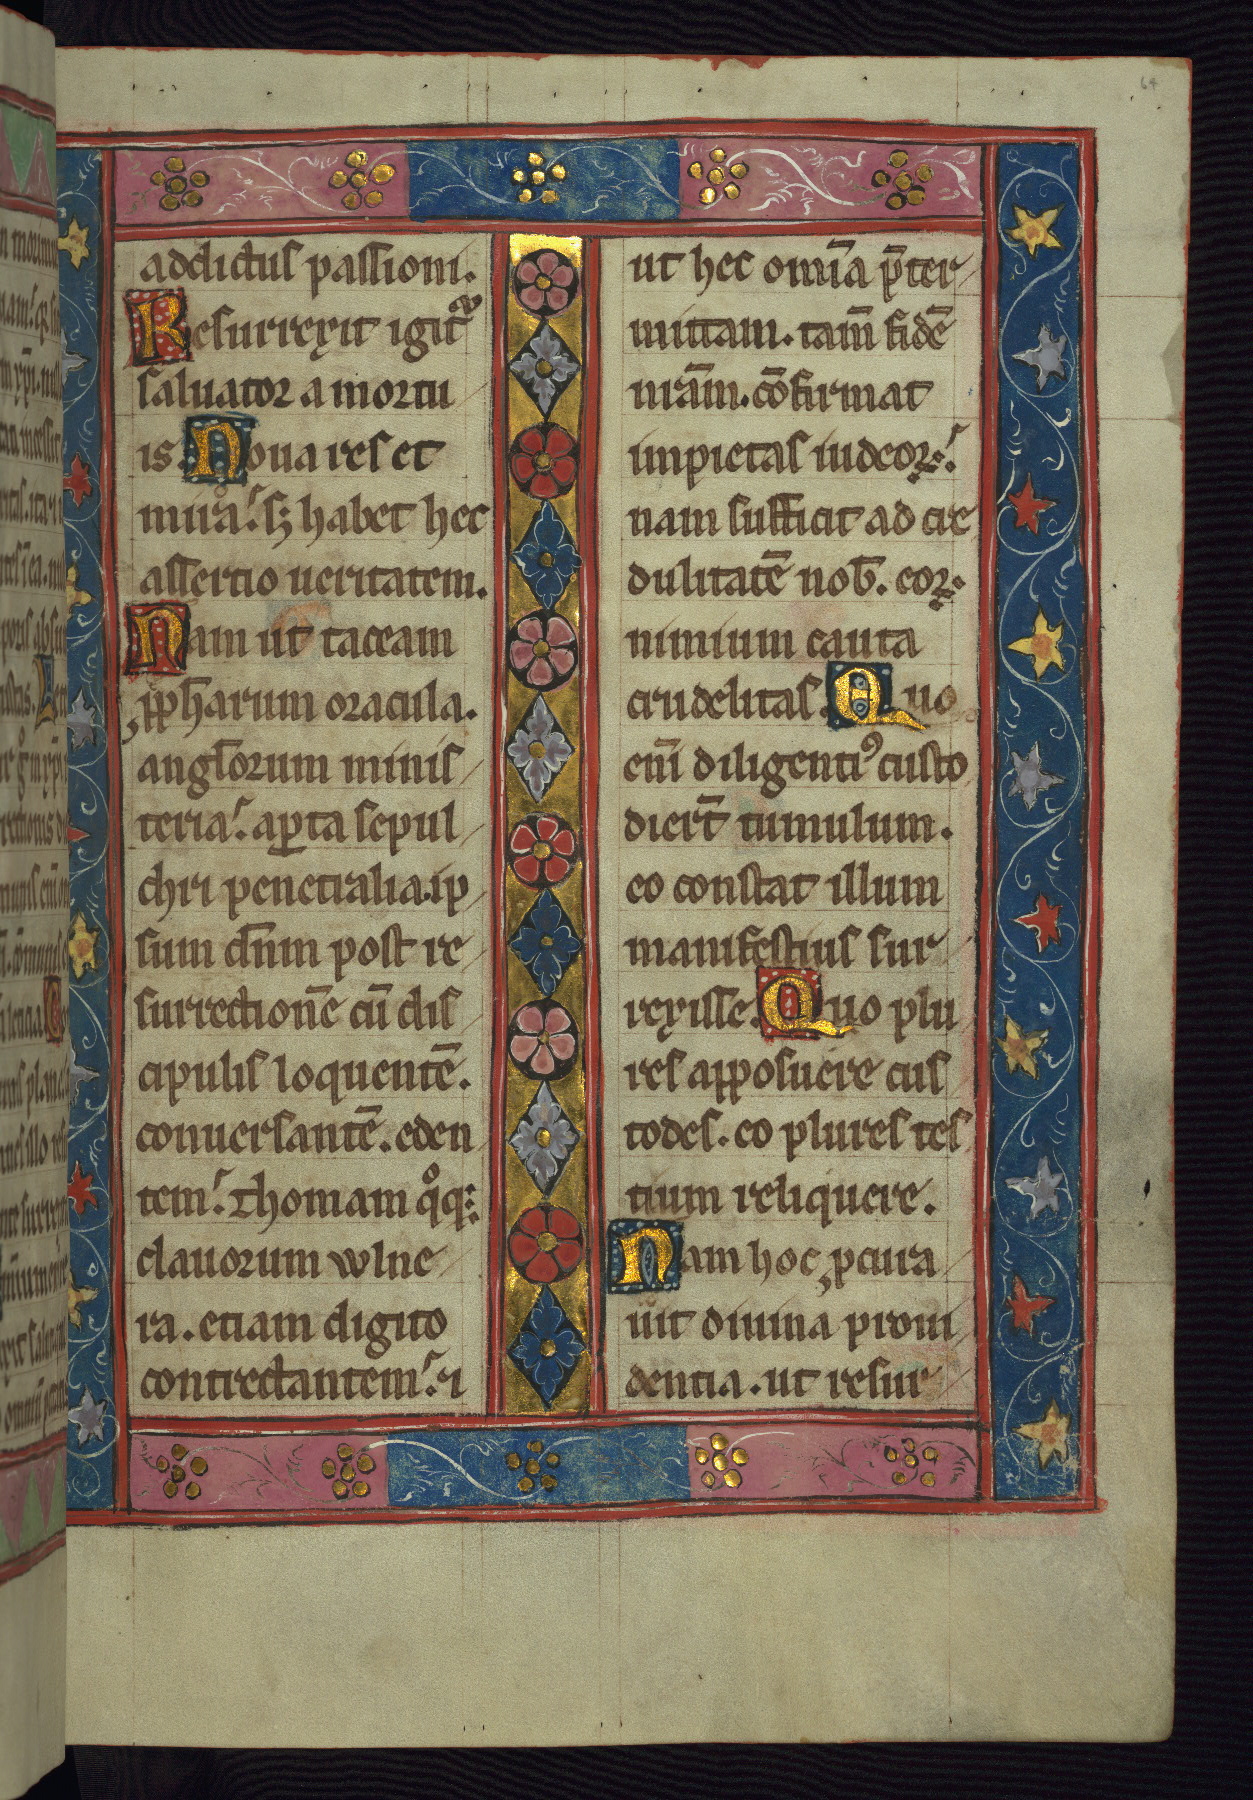 addictus passioni.
Resurrexit igit᷑
saluator a mortu
is. Noua res et
mira. sꝫ habet hec
assertio ueritatem.
Nam ut taceam
ꝓph̄arum oracula.
angl̄orum minis
teria. aꝑta sepul
chri penetralia. ip
sum dn̄m post re
surrectionē cū dis
cipulis loquentē.
conuersantē. eden
tem. Thomam qͦqꝫ
clauorum wlne
ra. etiam digito
contrectantem. ⁊
ut hec omīa p̄ter
mittam. tam̄ fidē
nr̄am. cōfirmat
impietas iudeoꝝ.
nam sufficit ad cre
dulitatē nob̄. eoꝝ
nimium cauta
crudelitas. Quo
enī diligentiꝰ custo
dier̄t tumulum.
eo constat illum
manifestius sur
rexisse. Quo plu
res apposuere cus
todes. eo plures tes
tium reliquere.
Nam hoc ꝓcura
uit diuina proui
dentia. ut resur
64